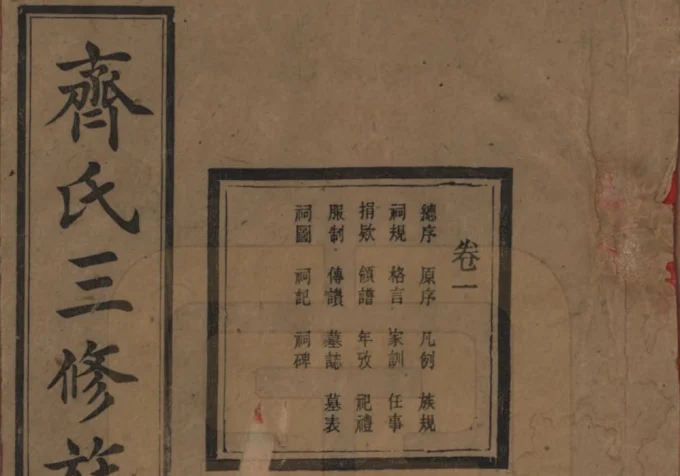 卷一
總序 原序 凡例 族規
祠規 格言 家訓 任事
捐欵 領譜 年攷 祀禮
服制 傳讚 墓誌 墓表
祠圖 祠記 祠碑
齊氏三修族